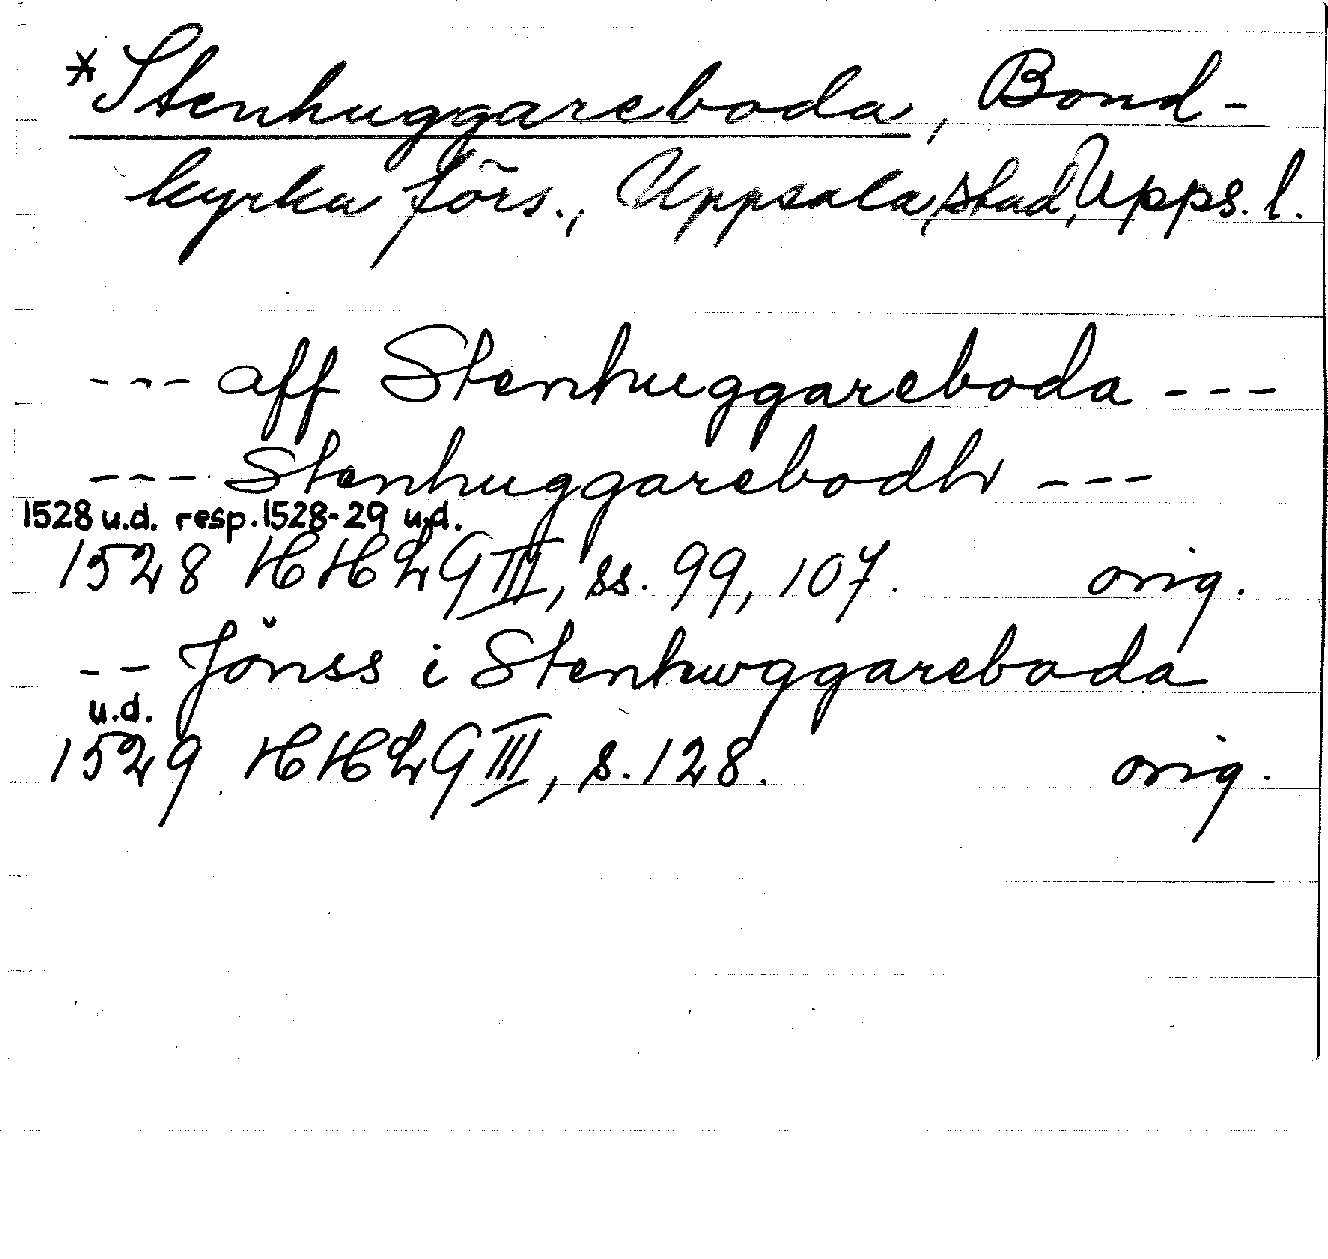 *Stenhuggareboda, Bond-
kyrka förs., Uppsala stad, Upps. l.
--- aff Stenhuggareboda ---
--- Stenhuggarebodhr ---
1528 u.d. resp. 1528-29 u.d.
1528 HHLG III, ss. 99, 107. orig.
-- Jönss i Stenhwggareboda
u.d.
1529 HHLG III, s. 128. orig.